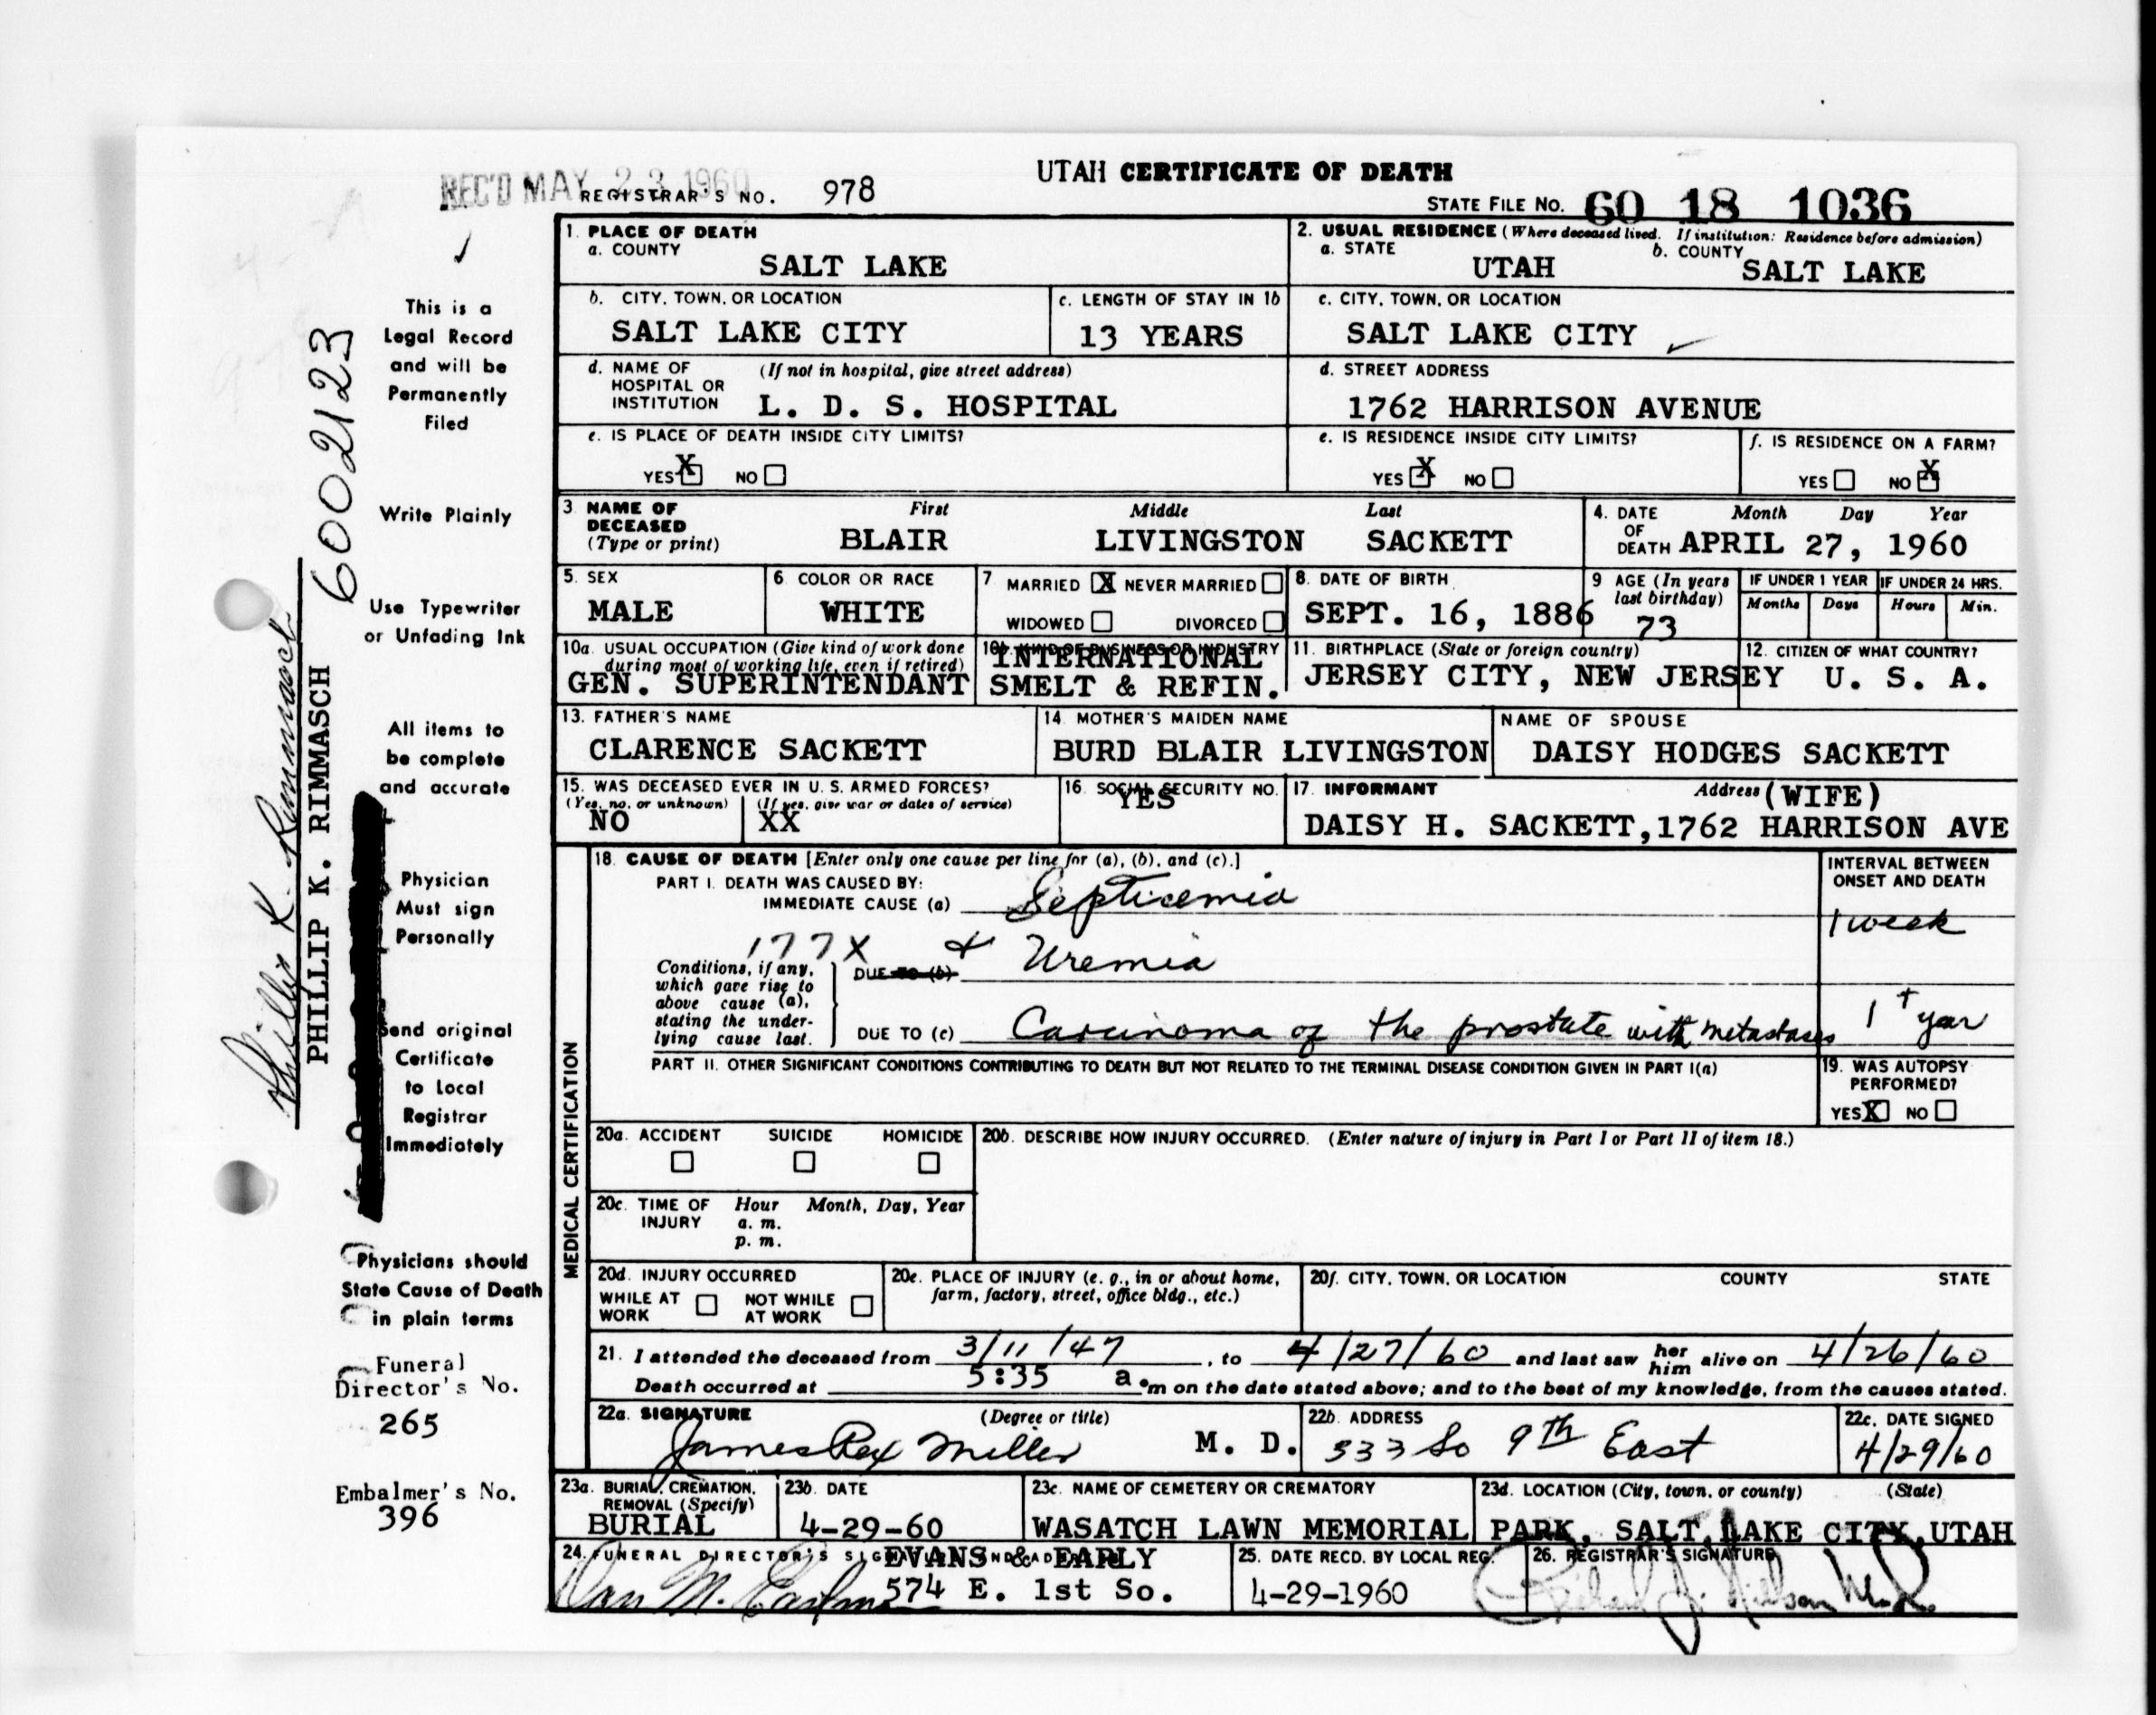 UTAH CERTIFICATE OF DEATH
REC'D MAY 23 1960
REGISTRAR'S NO. 978
STATE FILE NO. 60 18 1036
1. PLACE OF DEATH
a. COUNTY
SALT LAKE
2. USUAL RESIDENCE (Where deceased lived. If institution: Residence before admission)
a. STATE UTAH b. COUNTY SALT LAKE
b. CITY, TOWN, OR LOCATION
SALT LAKE CITY
c. LENGTH OF STAY IN 1b
13 YEARS
c. CITY, TOWN, OR LOCATION
SALT LAKE CITY
d. NAME OF HOSPITAL OR INSTITUTION (If not in hospital, give street address)
L. D. S. HOSPITAL
d. STREET ADDRESS
1762 HARRISON AVENUE
e. IS PLACE OF DEATH INSIDE CITY LIMITS?
YES X NO
e. IS RESIDENCE INSIDE CITY LIMITS?
YES X NO
f. IS RESIDENCE ON A FARM?
YES NO X
3. NAME OF DECEASED (Type or print)
First Middle Last
BLAIR LIVINGSTON SACKETT
4. DATE OF DEATH Month Day Year
APRIL 27, 1960
5. SEX
MALE
6. COLOR OR RACE
WHITE
7 MARRIED X NEVER MARRIED
WIDOWED DIVORCED
8. DATE OF BIRTH
SEPT. 16, 1886
9 AGE (In years last birthday)
73
IF UNDER 1 YEAR IF UNDER 24 HRS.
Months Days Hours Min.
10a. USUAL OCCUPATION (Give kind of work done during most of working life, even if retired)
GEN. SUPERINTENDANT
10b. KIND OF BUSINESS OR INDUSTRY
INTERNATIONAL
SMELT & REFIN.
11. BIRTHPLACE (State or foreign country)
JERSEY CITY, NEW JERSEY
12. CITIZEN OF WHAT COUNTRY?
U. S. A.
13. FATHER'S NAME
CLARENCE SACKETT
14. MOTHER'S MAIDEN NAME
BURD BLAIR LIVINGSTON
NAME OF SPOUSE
DAISY HODGES SACKETT
15. WAS DECEASED EVER IN U. S. ARMED FORCES?
(Yes, no, or unknown) (If yes, give war or dates of service)
NO XX
16. SOCIAL SECURITY NO.
YES
17. INFORMANT Address (WIFE)
DAISY H. SACKETT, 1762 HARRISON AVE
MEDICAL CERTIFICATION
18. CAUSE OF DEATH [Enter only one cause per line for (a), (b), and (c).]
INTERVAL BETWEEN ONSET AND DEATH
PART I. DEATH WAS CAUSED BY:
IMMEDIATE CAUSE (a) Septicemia
1 week
177X
Conditions, if any, which gave rise to above cause (a), stating the underlying cause last.
DUE TO (b) & Uremia
DUE TO (c) Carcinoma of the prostate with metastases
1+ year
PART II. OTHER SIGNIFICANT CONDITIONS CONTRIBUTING TO DEATH BUT NOT RELATED TO THE TERMINAL DISEASE CONDITION GIVEN IN PART I(a)
19. WAS AUTOPSY PERFORMED?
YES X NO
20a. ACCIDENT SUICIDE HOMICIDE
20b. DESCRIBE HOW INJURY OCCURRED. (Enter nature of injury in Part I or Part II of item 18.)
20c. TIME OF INJURY Hour Month, Day, Year
a. m.
p. m.
20d. INJURY OCCURRED
WHILE AT WORK NOT WHILE AT WORK
20e. PLACE OF INJURY (e. g., in or about home, farm, factory, street, office bldg., etc.)
20f. CITY, TOWN, OR LOCATION COUNTY STATE
21. I attended the deceased from 3/11/47, to 4/27/60 and last saw her him alive on 4/26/60
Death occurred at 5:35 a.m on the date stated above; and to the best of my knowledge, from the causes stated.
22a. SIGNATURE (Degree or title)
James Rex Miller M. D.
22b. ADDRESS
533 So 9th East
22c. DATE SIGNED
4/29/60
23a. BURIAL, CREMATION, REMOVAL (Specify)
BURIAL
23b. DATE
4-29-60
23c. NAME OF CEMETERY OR CREMATORY
23d. LOCATION (City, town, or county) (State)
WASATCH LAWN MEMORIAL PARK, SALT LAKE CITY, UTAH
24. FUNERAL DIRECTOR'S SIGNATURE AND ADDRESS
EVANS & EARLY
574 E. 1st So.
25. DATE RECD. BY LOCAL REG.
4-29-1960
26. REGISTRAR'S SIGNATURE
This is a
Legal Record
and will be
Permanently
Filed
Write Plainly
Use Typewriter
or Unfading Ink
All items to
be complete
and accurate
Physician
Must sign
Personally
Send original
Certificate
to Local
Registrar
Immediately
Physicians should
State Cause of Death
in plain terms
Funeral
Director's No.
265
Embalmer's No.
396
6002123
Phillip K. Rimmasch
PHILLIP K. RIMMASCH